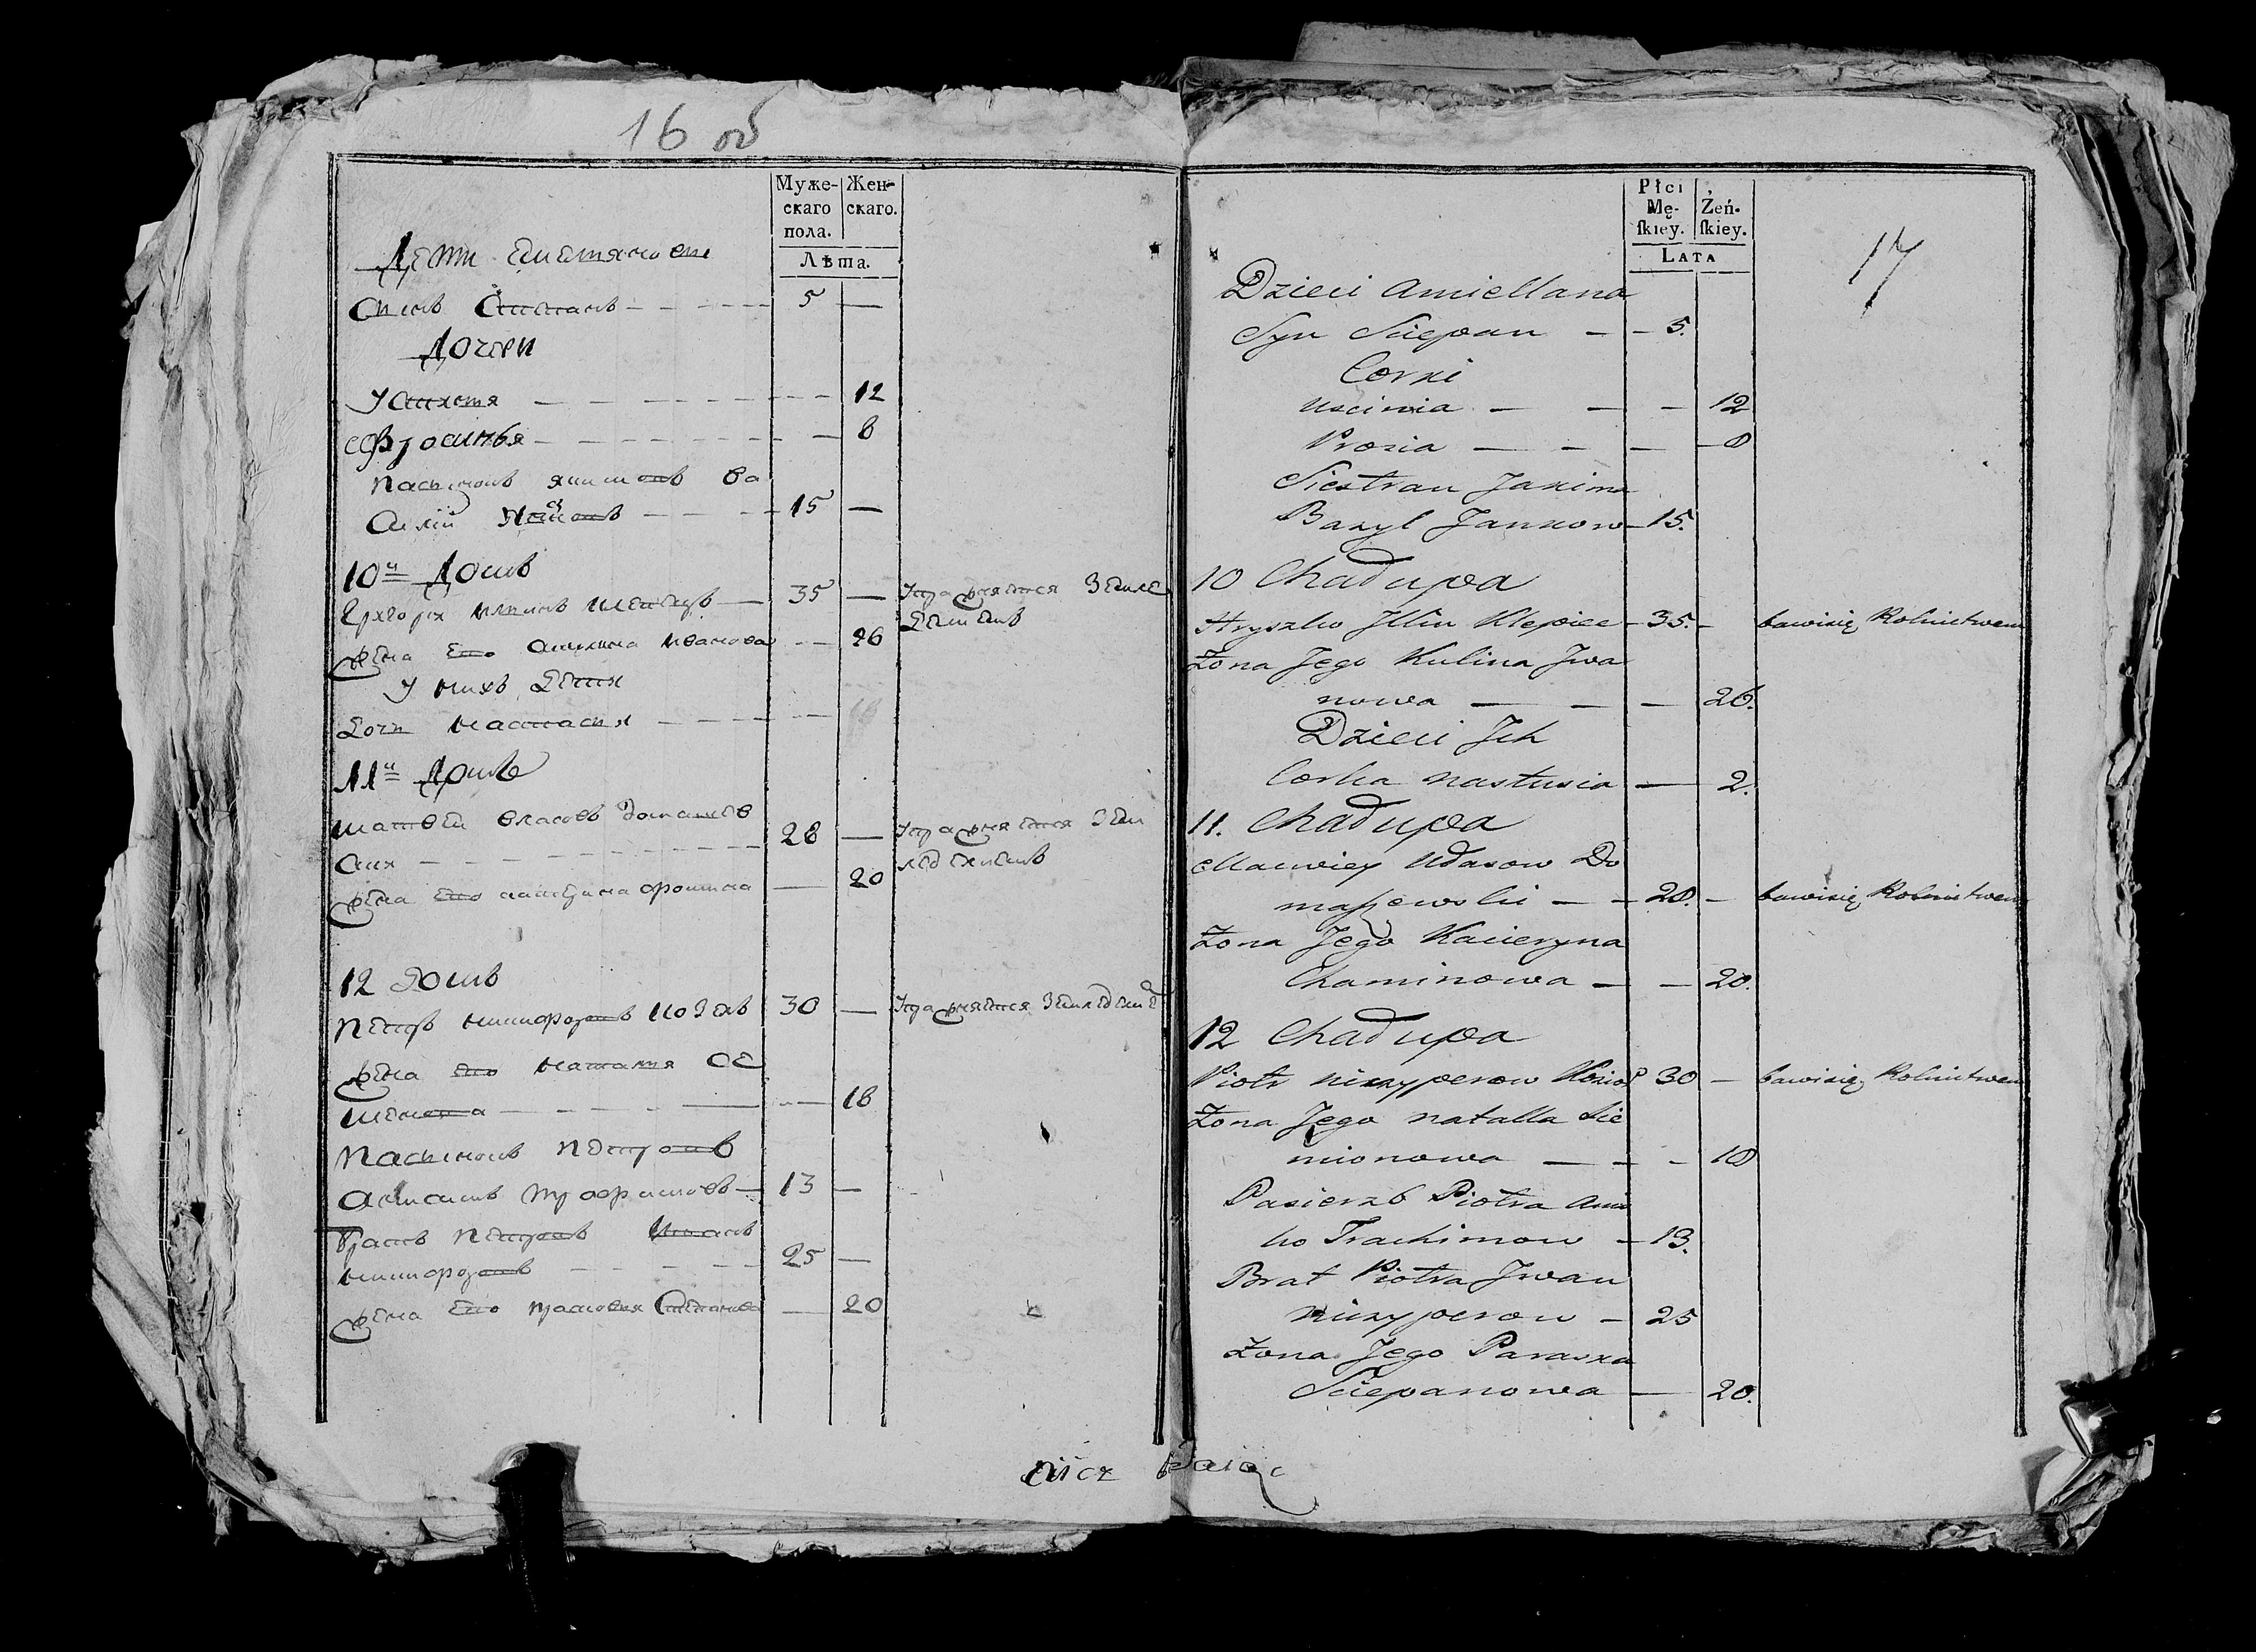 16 об
Муже-
скаго
пола.
Жен-
скаго.
Лѣта.
Дети
Сынъ Степанъ - - - - - 5 —
Дочери
Устинья - - - - - - - 12
Ефросинья - - - - - - — 8
Пасынокъ Ва
15 —
10й Домъ
35 — Упражняется Земле
Деліемъ
Жена Его Акилина Иванова - - 26
У нихъ Дети
Дочь Настасия - - - - -
11й Домъ
Матвей Власовъ
28 — Упражняется Зем
Жена Его Катерина — 20
12 Домъ
Петръ Никифоровъ Козелъ 30 — Упражняется
Жена Его Наталия Се
менова - - - - — - - 18
Пасынокъ Петровъ
Трофимовъ — 13 —
Братъ Петровъ Иванъ
Никифоровъ - - - - - 25 —
Жена Его Прасковья Степанова — 20
Płci
Mę-
ſkiey.
Żeń-
ſkiey.
LATA
17
Dzieci Amiellana
Syn Sciepan — - 5.
Corki
Uscinia — — - 12
Prosia — - — - 8
Siestran Jakima
Bazyl Jankow - 15.
10 Chadupa
Hryszko Jllin Klepiec - 35. - bawi się Rolnictwem
Żona Jego Kulina Jwa
nowa — — - 26.
Dzieci Jch
Corka Nastusia — 2.
11. Chadupa
Maciviey Udasow Do
maszewski — - 28. - bawi się Rolnictwem
Żona Jego Kacieryna
Chaminowa — - 20.
12 Chadupa
Piotr Niczyperow Kozioł 30 — bawi się Rolnictwem
Żona Jego Natalla Sie
mionowa — - - 18
Pasierzb Piotra
Trachimow - 13.
Brat Piotra Jwan
Niczyperow - 25
Żona Jego Paraska
Sciepanowa — 20.